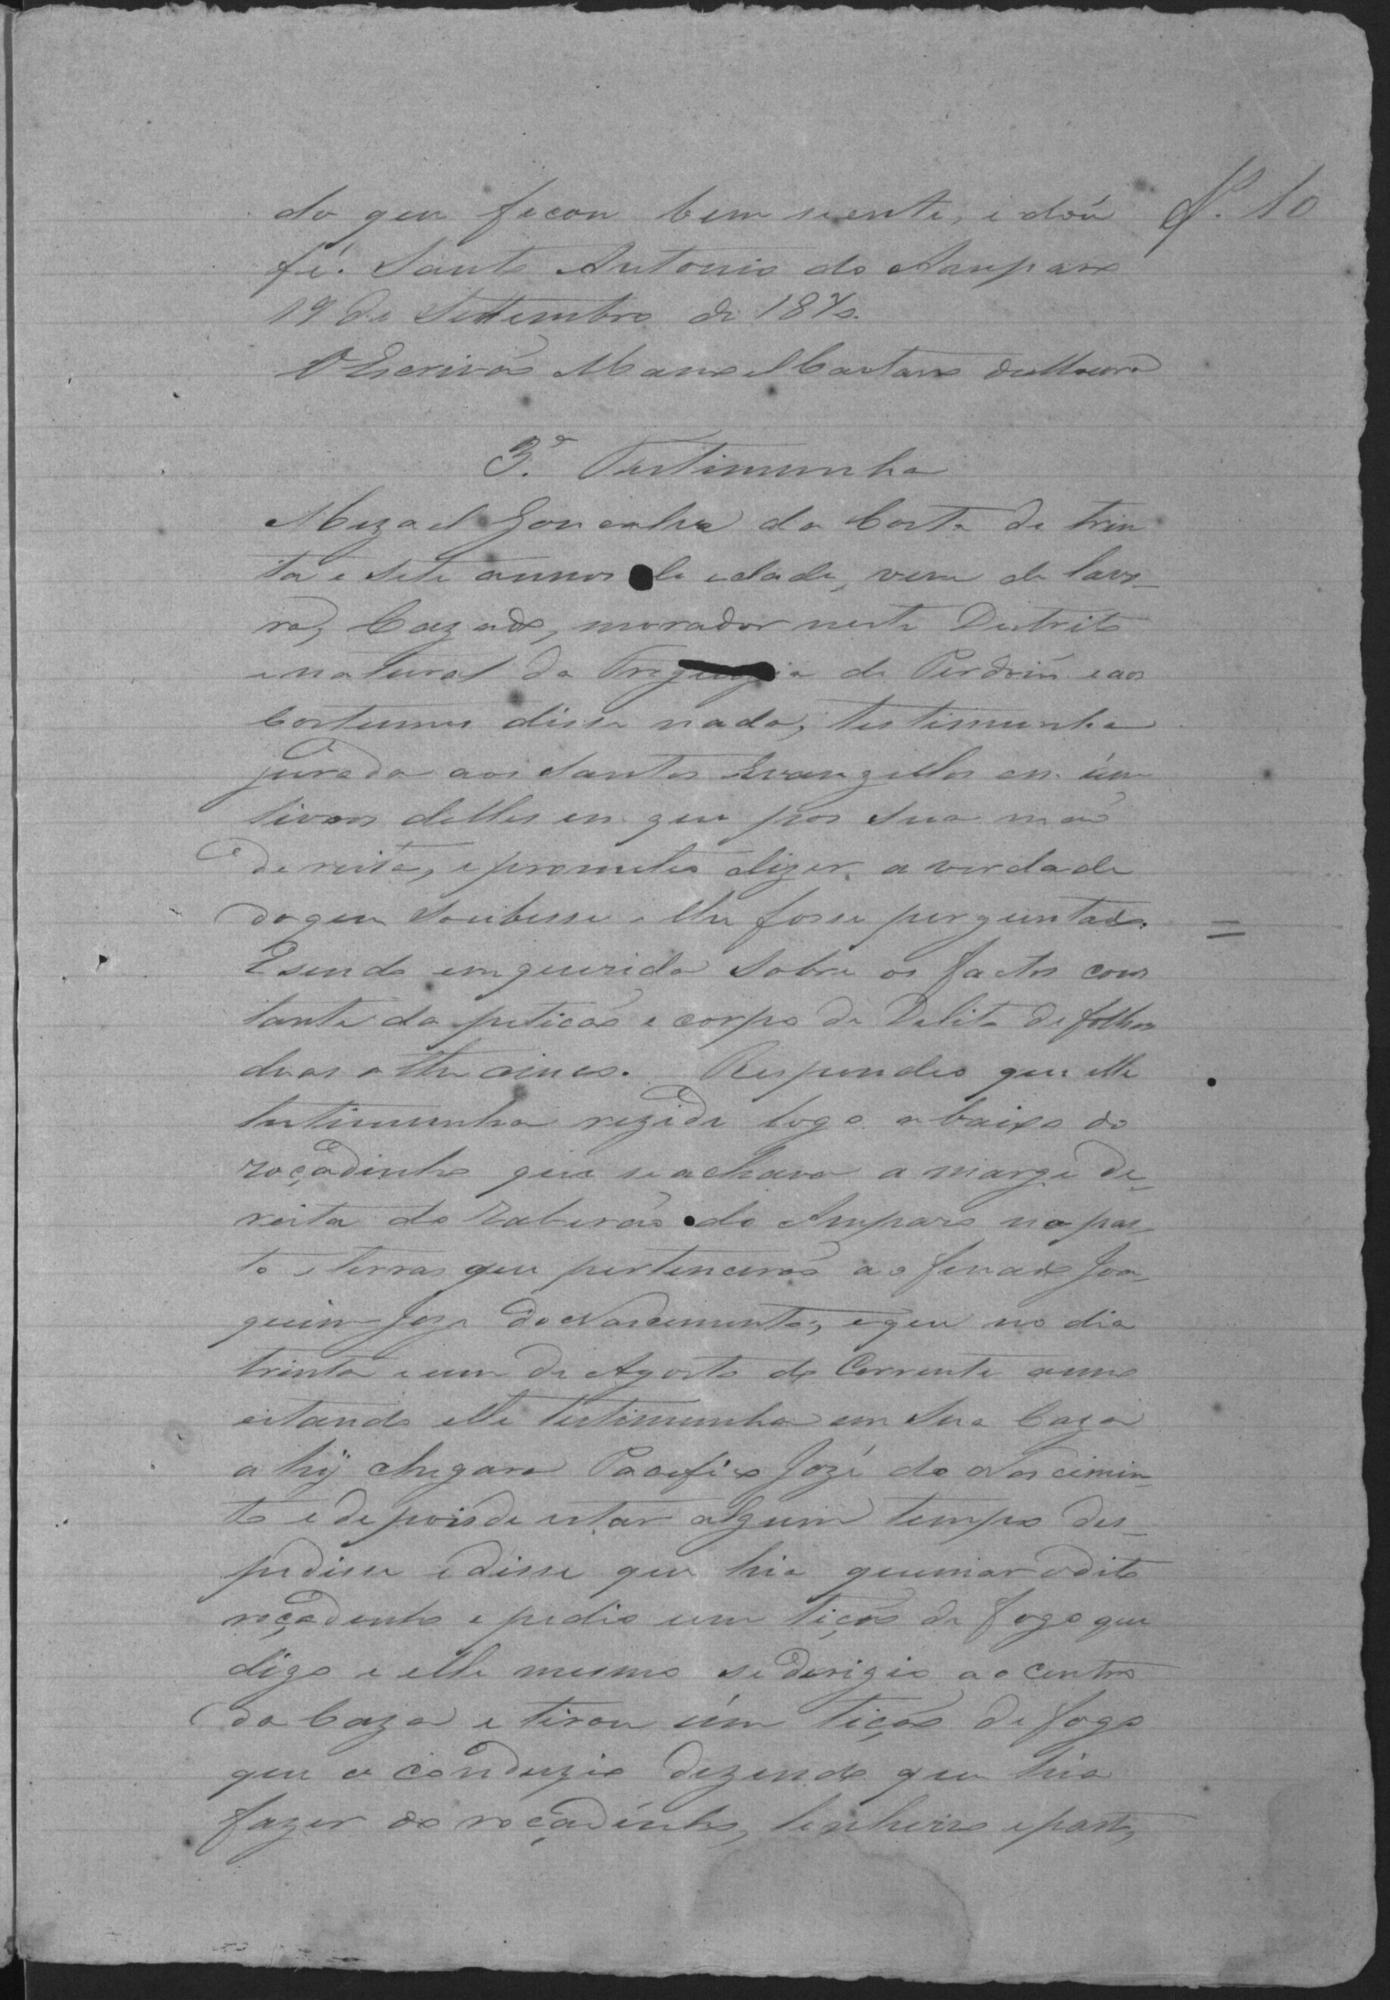 do que ficou bem siente, e doú
fé. Santo Antonio do Amparo
19 de Settembro de 1870.
O Escrivaõ Manoel Caetano de Moura
fl. 10
3ª. Testimunha
Mizael Gonçalves da Costa de trin
ta e sete annos de edade, vive de lavo_
ra, Cazado, morador neste Destrito
e natural da Freguezia de Perdoins e aos
Costumes disse nada, testimunha
jurada aos Santos Evangelhos em úm
livro delles em que pos sua maõ
dereita, e prometeo dizer a verdade
do que soubesse e lhe fosse perguntado. =
E sendo emquerida sobre os factos cons
tante da peticaõ e corpo de Delito de folhas
duas athe cinco. Respondeo que elle
testimunha rezide logo abaixo do
roçadinho que se achava a marge de_
reita do Raberaõ do Amparo no pas_
to e terras que pertenceraõ ao finado Joa_
quim Joze do Nascimento, e que no dia
trinta e um de Agosto do Corrente anno
estando elle testimunha em sua Caza
ahÿ chegara Pacifico Jozé do Nascimen_
to e depois de estar algum tempo des_
pedisse e disse que hia queimar o dito
roçadinho e pedio um ticaõ de fogo que
digo e elle mesmo se derigio ao centro
da Caza e tirou úm tiçaõ de fogo
que o conduzio dezendo que hia
fazer do roçadinho, linheiro e pasto,